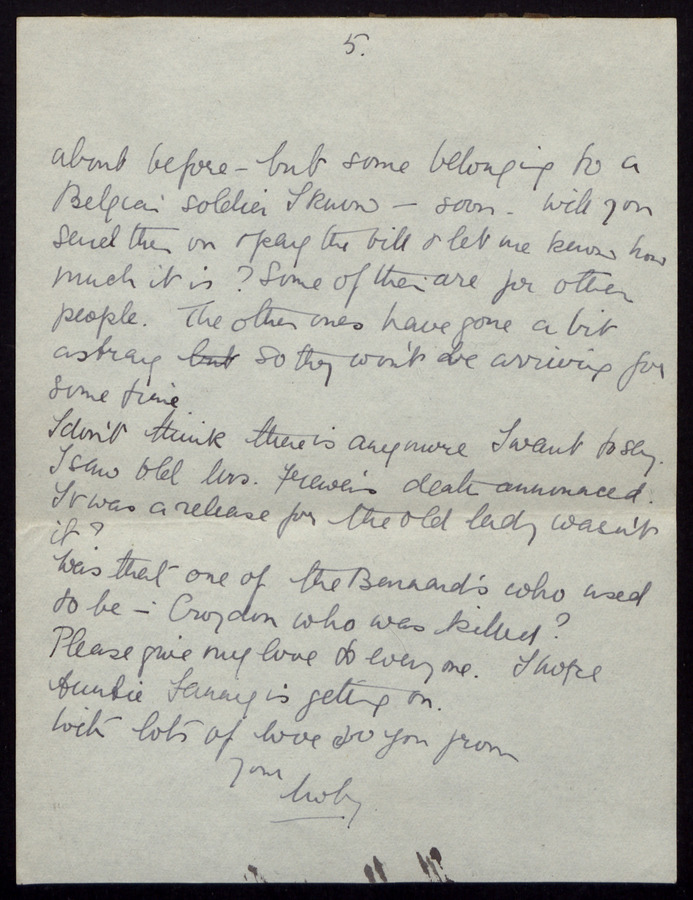 5.
about before - but some belonging to a
Belgian soldier I know - soon - will you
send them on & pay the bill & let me know how
much it is? Some of them are for other
people. The other ones have gone a bit
astray but so they won't be arriving for
some time
I don't think there is anymore I want to say.
I saw old Mrs. death announced.
It was a release for the old lady wasn't
it?
Was that one of the Bernard's who used
to be in Croydon who was killed?
Please give my love to everyone. I hope
Auntie Fanny is getting on.
With lots of love to you from
your